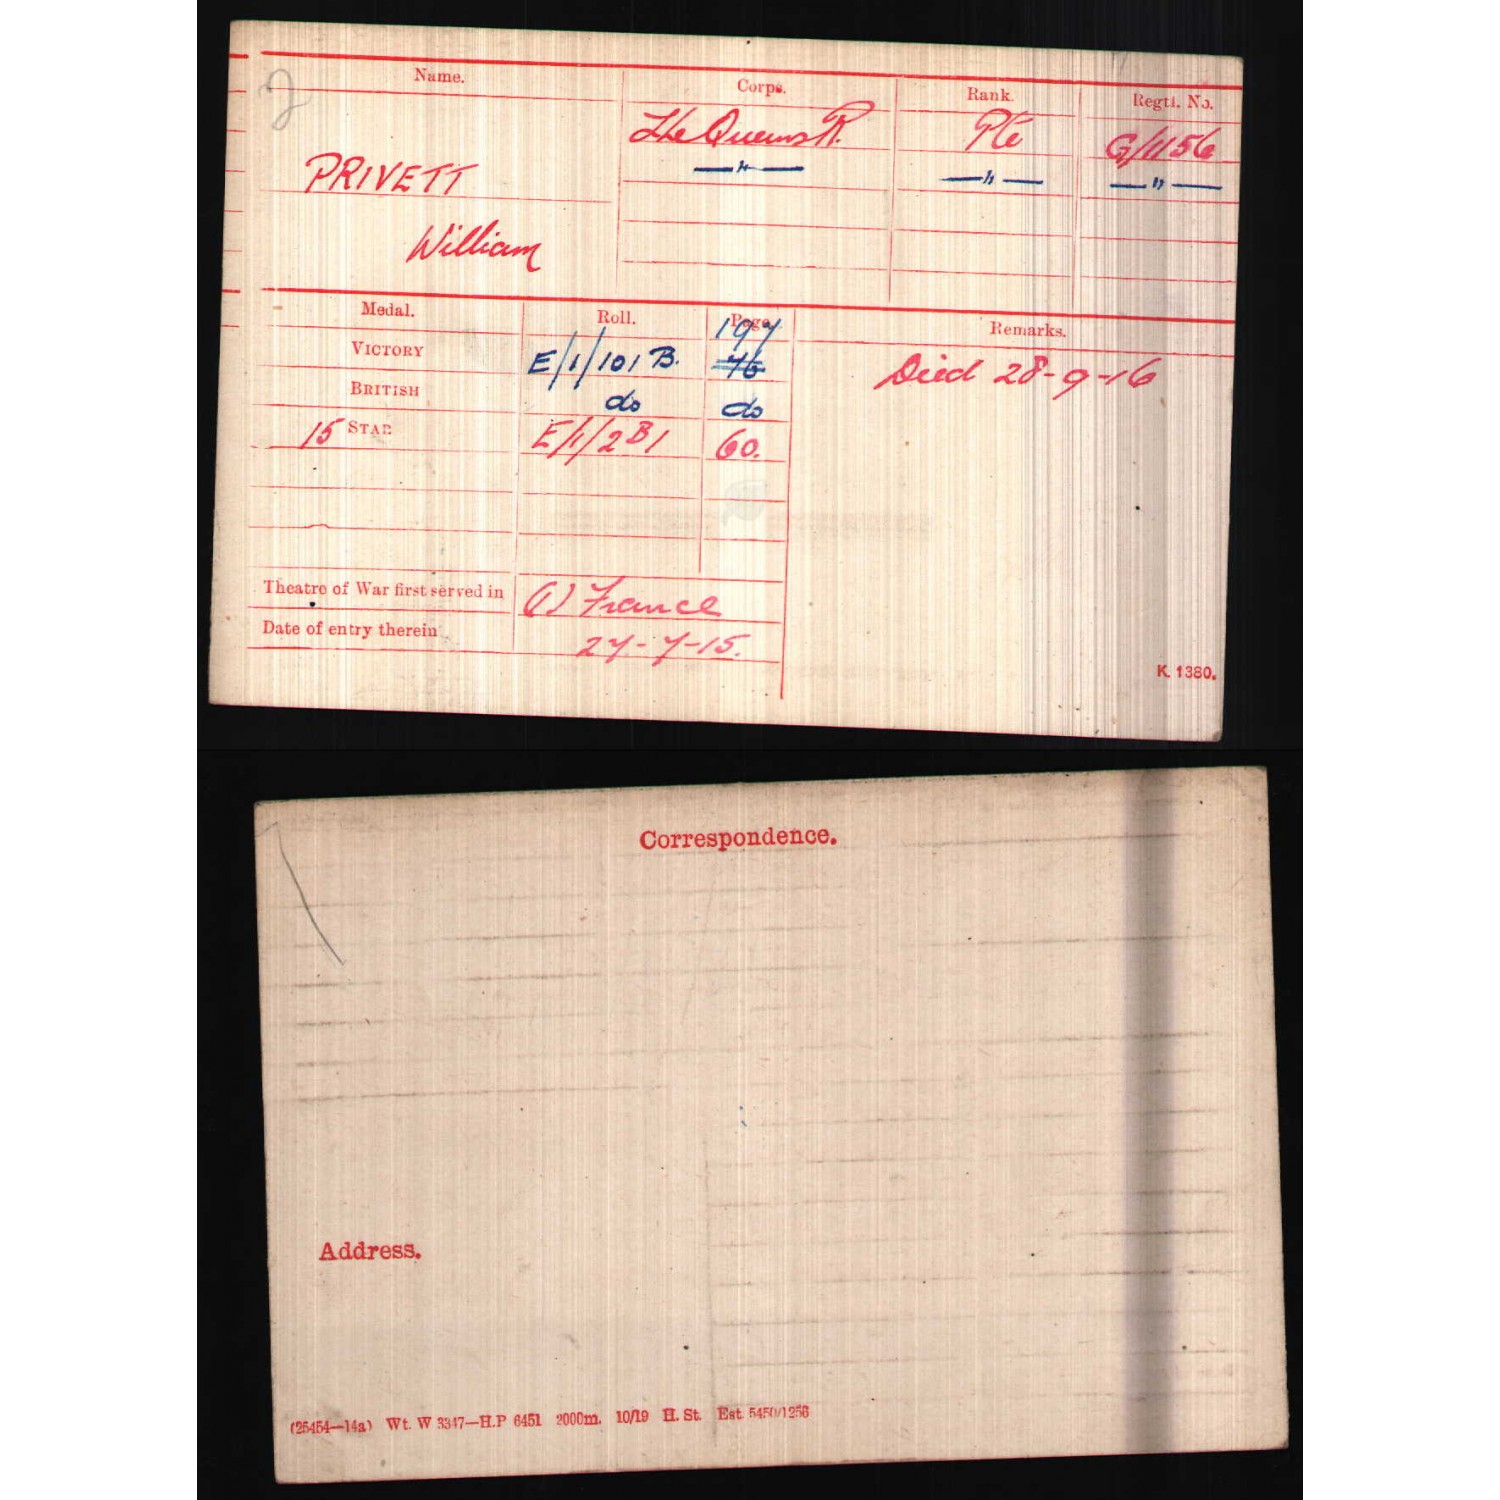 Name. Corps. Rank. Regtl. No.
The Queens R. Pte G/1156
PRIVETT — " — — " — — " —
William
Medal. Roll. Page. Remarks.
197
VICTORY E/1/101 B. 76 Died 28-9-16
BRITISH do do
15 STAR E/1/2 B1 60.
Theatre of War first served in (1) France
Date of entry therein 27-7-15.
K. 1380.
Correspondence.
Address.
(25454—14a) Wt. W 3347—H.P 6451 2000m. 10/19 H. St. Est. 5450/1256